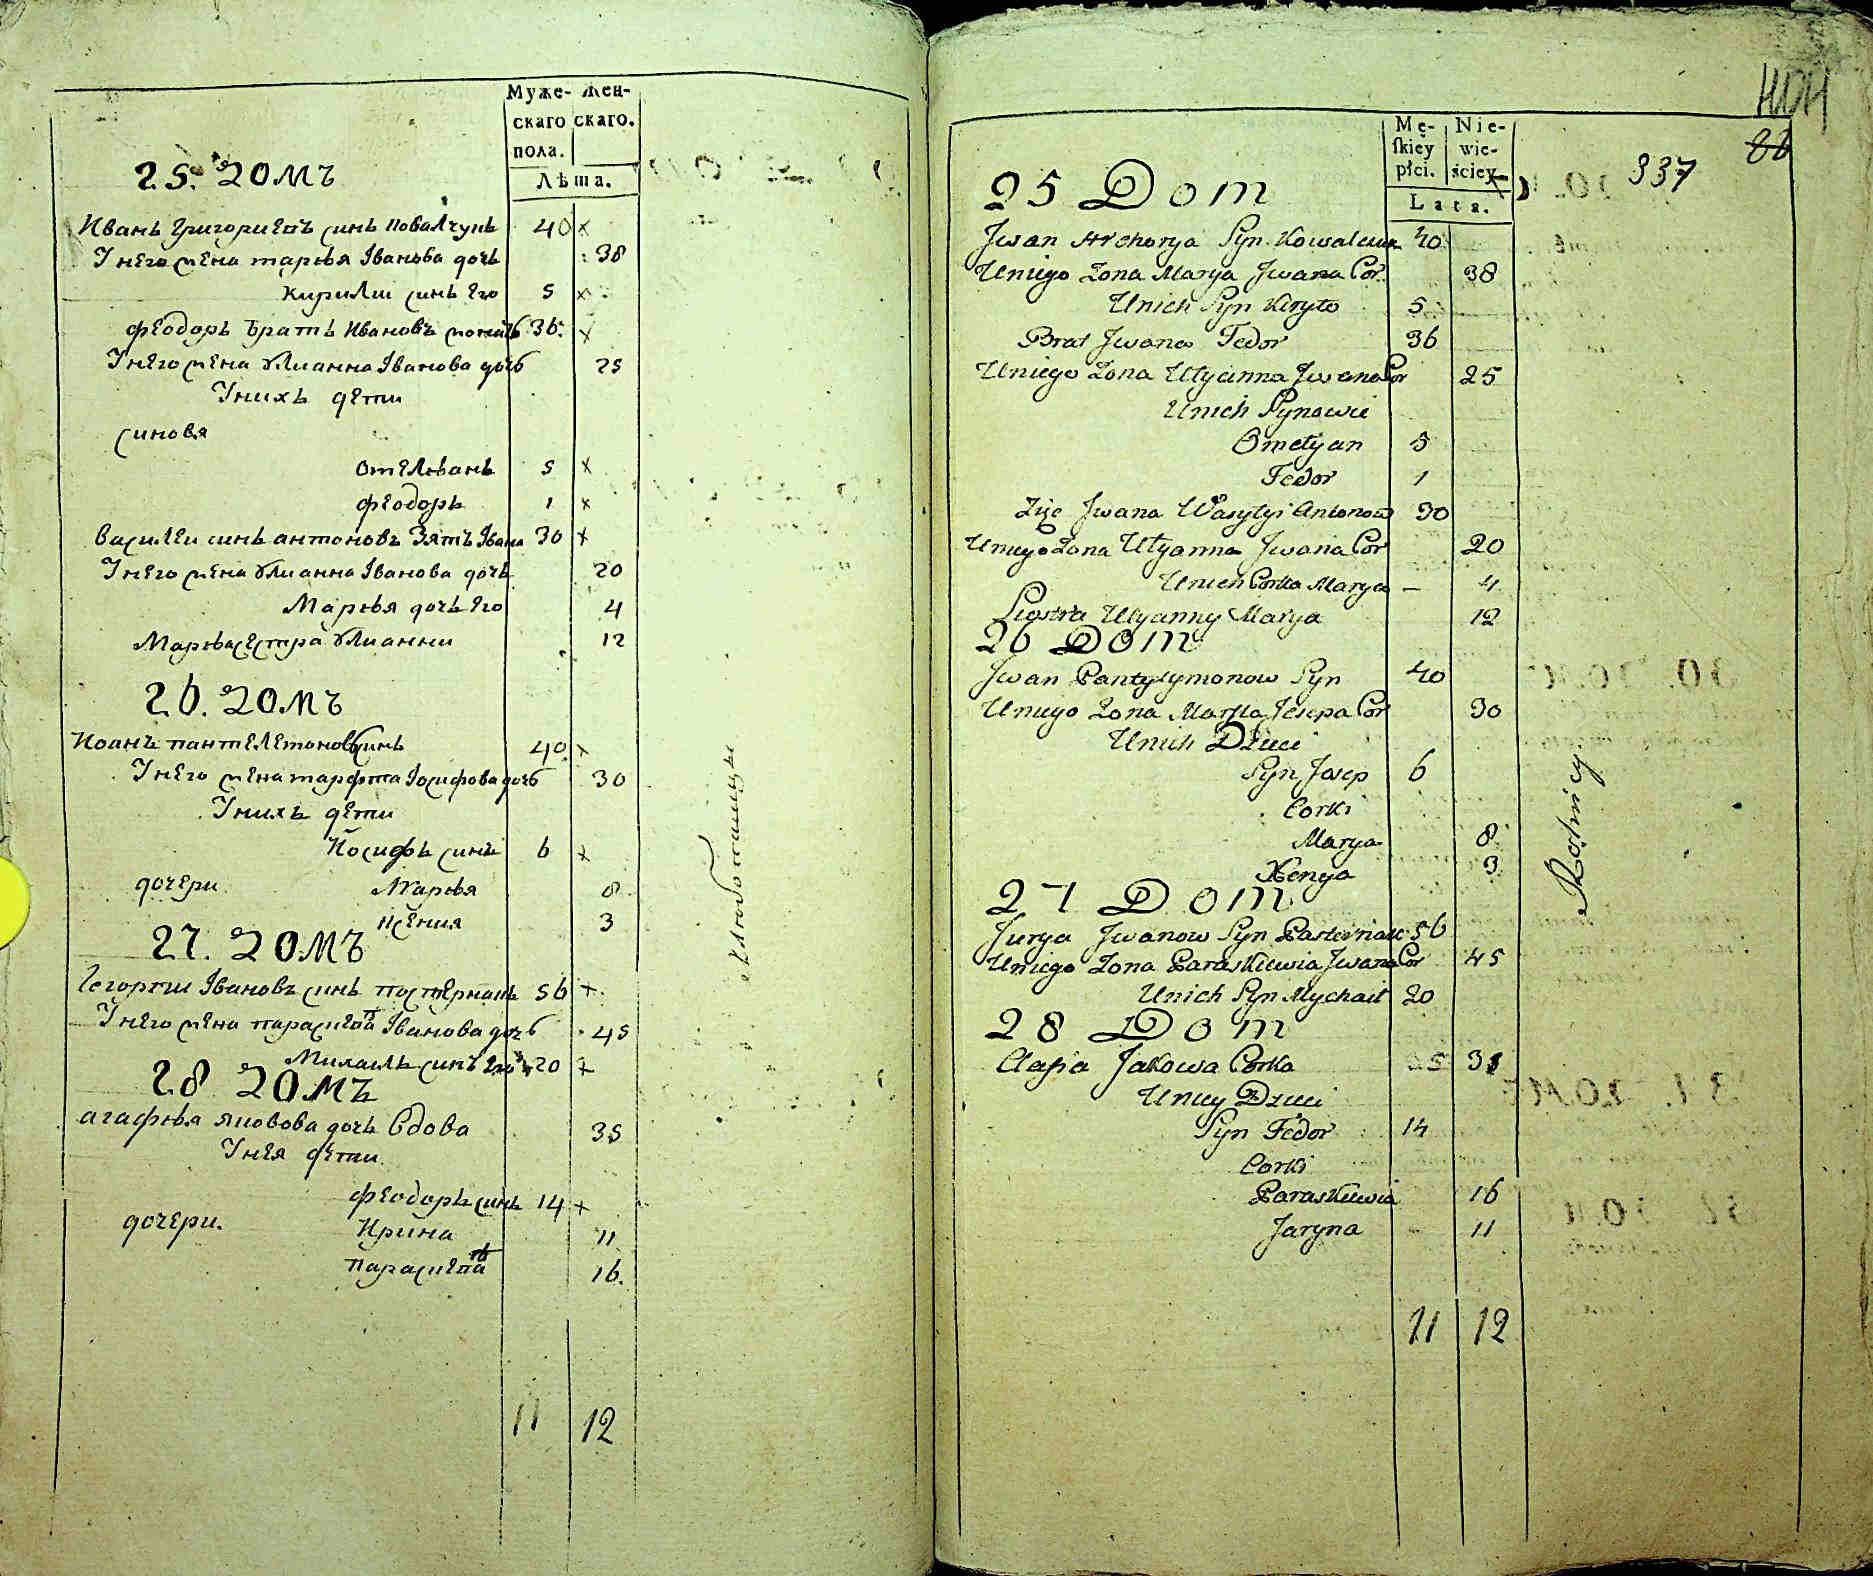 Муже- Жен-
скаго скаго.
пола.
Лѣта.
25. домъ
Иванъ Григориевъ синъ Ковалчукъ 40 x
У него жена Марья Іванова дочь 38
Кирилли синъ его 5 x
Феодоръ братъ Ивановъ 36 x
У него жена Улианна Іванова дочь 25
У нихъ дети
синовя
Омельянъ 5 x
Феодоръ 1 x
Василеи синъ Антоновъ зять Івана 30 x
У него жена Улианна Іванова дочь 20
Марья дочь его 4
Марья сестра Улианни 12
26. домъ
Иоанъ Пантелемоновъ синъ 40 x
У него жена Марфта Іосифова дочь 30
У нихъ дети
Иосифъ синъ 6 x
дочери Марья 8
Ксения 3
27. домъ
Георгии Івановъ синъ Пастернакъ 56 x
У него жена Параскева Іванова дочь 45
Михаилъ синъ его 20 x
28 домъ
Агафья Яковова дочь вдова 35
У нея дети
Феодоръ синъ 14 x
дочери. Ирина 11
Параскева 16.
11 12
Mę- Nie-
skiey wie-
płci. ściey
Lata.
337
86
25 Dom
Jwan Hrehorya Syn Kowalczuk 40
Uniego Zona Marya Jwana Cor 38
Unich Syn Kiryło 5
Brat Jwana Fedor 36
Uniego Zona Ulyanna Jwana Cor 25
Unich Synowie
Omelyan 5
Fedor 1
Zięc Jwana Wasylyi Antonow 30
Uniego Zona Ulyanna Jwana Cor 20
Unich Corka Marya — 4
Siostra Ulyanny Marya 12
26 Dom
Jwan Pantylymonow Syn 40
Uniego Zona Marfta Josepa Cor 30
Unich Dzieci
Syn Josep 6
Corki
Marya 8
Xenya 3
27 Dom
Jurya Jwanow Syn Pasternak 56
Uniego Zona Paraskiewia Jwana Cor 45
Unich Syn Mychaił 20
28 Dom
Jakowa Corka 35
Uniey Dzieci
Syn Fedor 14
Corki
Paraskiewia 16
Jaryna 11
Rolnicy
11 12